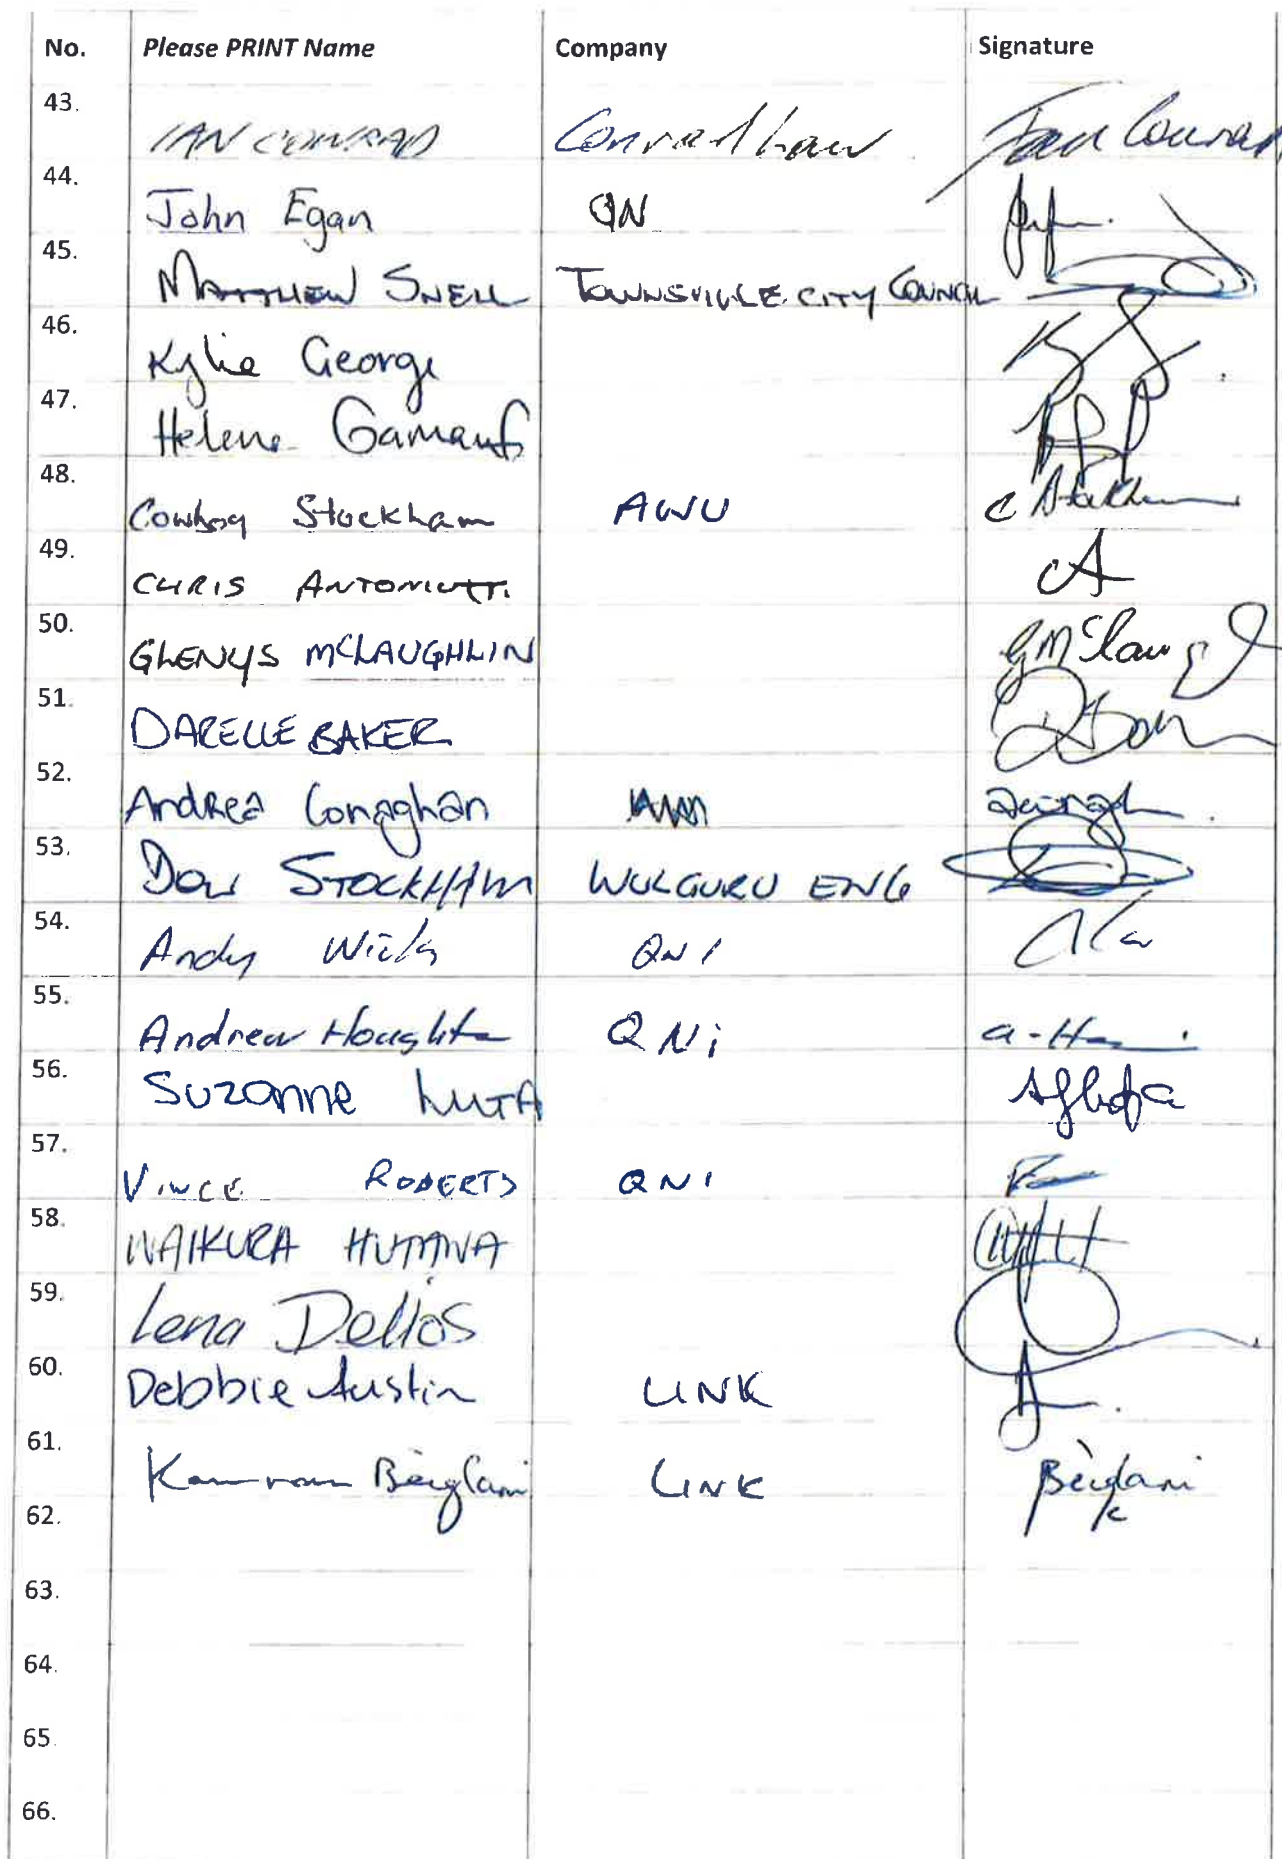 No. Please PRINT Name Company Signature
43. IAN CONRAD Conrad Law Ian Conrad
44. John Egan QN
45. MATTHEW SNELL TOWNSVILLE CITY COUNCIL
46. Kylie George
47. Helene Gamauf
48. Cowboy Stockham AWU C Stockham
49. CHRIS ANTONIUTTI CA
50. GLENYS MCLAUGHLIN
51. DARELLE BAKER
52. Andrea Conaghan
53. Don STOCKHAM WULGURU ENG
54. Andy Wicks QNI
55. Andrew Houghton QNi
56. Suzanne
57. VINCE ROBERTS QNI
58. WAIKURA HUTANA
59. Lena Delios
60. Debbie Austin LINK
61. Kamran Béiglari LINK
62.
63.
64.
65.
66.